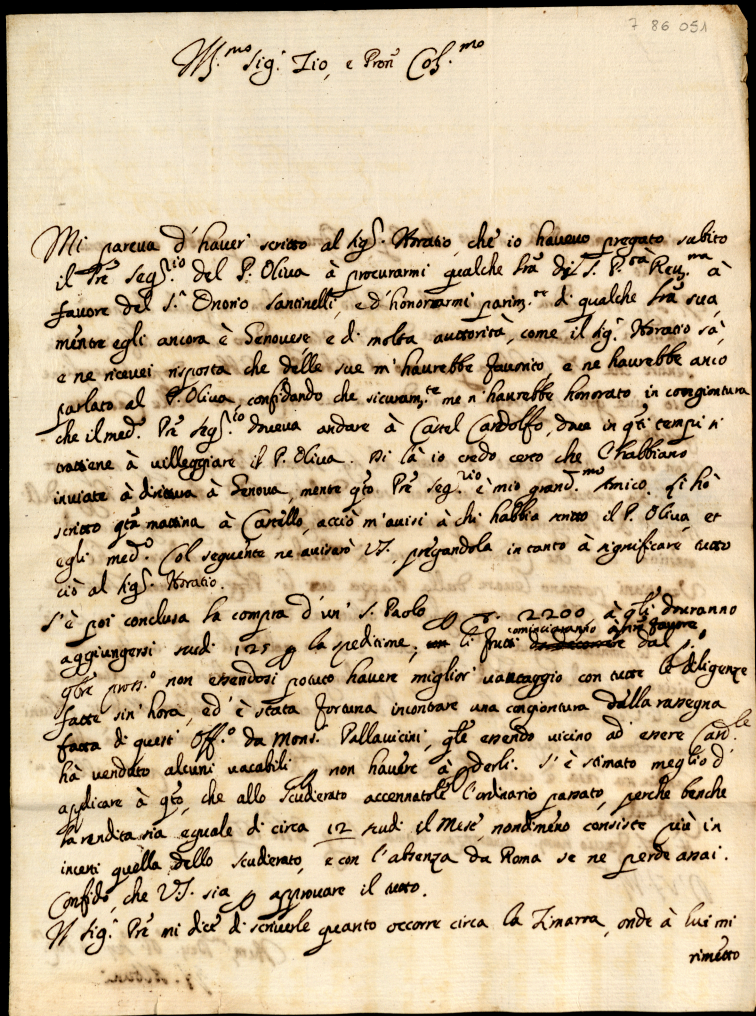 7 86 051
Ill.mo Sig.r Zio, e Pron Col.mo
Mi pareva d'haver' scritto al Sig.r Horatio, che io havevo pregato subito
il Pre Seg.rio del P. Oliva à procurarmi qualche lra di S. P.tà Reu.ma à
favore del S.r Onorio Santinelli, e d'honorarmi parim.te di qualche lra sua,
mentre egli ancora è Genovese e di molta auttorità, come il Sig.r Horatio sà,
e ne ricevei risposta che delle sue m'haurebbe favorito, e ne haurebbe anco
parlato al P. Oliva, confidando che sicuram.te me n'haurebbe honorato in congiontura
che il med.o Pre Seg.rio doveva andare à Castel Gandolfo, dove in qti tempi si
trattiene à villeggiare il P. Oliva. Di là io credo certo che l'habbiano
inviate à dirittura à Genova, mentre qto Pre Seg.rio è mio grand.mo Amico. Gli hò
scritto qta mattina à Castello, acciò m'avisi à chi habbia scritto il P. Oliva, et
egli med.o Col seguente ne avisarò VS. pregandola in tanto à significare tutto
ciò al Sig.r Horatio.
S'è poi conclusa la compra d'un' S. Paolo p 2200 à qli dovranno
aggiungersi scudi 125 p la speditione; li frutti cominciaranno à suo favore dal
qte pross.o non essendosi potuto havere miglior' vantaggio con tutte le diligenze
fatte sin' hora, ed' è stata fortuna incontrare una congiontura dalla rassegna
fatta di questi Off.o da Mons.r Pallavicini, qle essendo vicino ad' essere Card.le
hà venduto alcuni vacabili p non havere à pderli. S'è stimato meglio d'
applicare à qto, che allo Scudierato accennatole l'ordinario passato, perche benche
la rendita sia eguale di circa 12 scudi il Mese, nondimeno consiste più in
incerti quella dello scudierato, e con l'absenza da Roma se ne perde assai.
Confido, che VS. sia p approvare il tutto.
Il Sig.r Pre mi dice di scriverle quanto occorre circa la Zimarra, onde à lui mi
rimetto